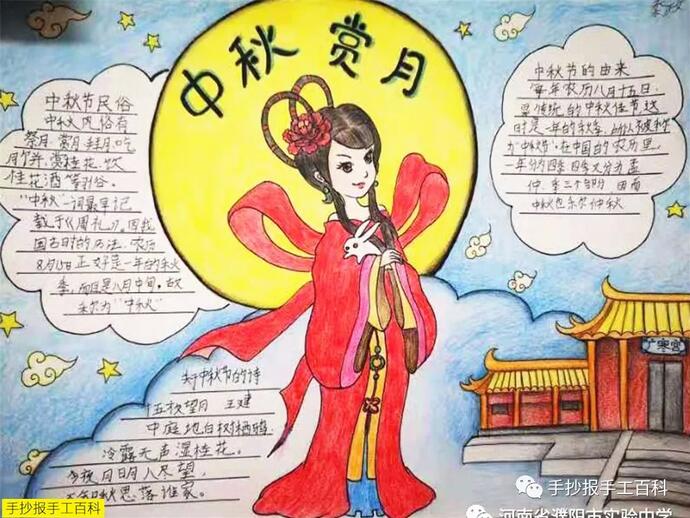 中秋赏月
中秋节民俗
中秋风俗有
祭月、赏月、拜月、吃
月饼、赏桂花、饮
桂花酒等习俗。
"中秋"一词最早记
载于《周礼》。因我
国古时的历法,农历
8月15日正好是一年的秋
季,而且是八月中间,故
称为"中秋"
中秋节的由来
每年农历八月十五日,
是传统的中秋佳节,这
时是一年的秋季,所以被称
为"中秋节".在中国的农历里,
一年分为四季,四季又分为孟
仲、季三个部分 因而
中秋也称仲秋
关于中秋节的诗
十五夜望月 王建
中庭地白树栖鸦
冷露无声湿桂花。
今夜月明人尽望,
秋思落谁家。
广寒宫
手抄报手工百科
手抄报手工百科
河南省濮阳市实验中学